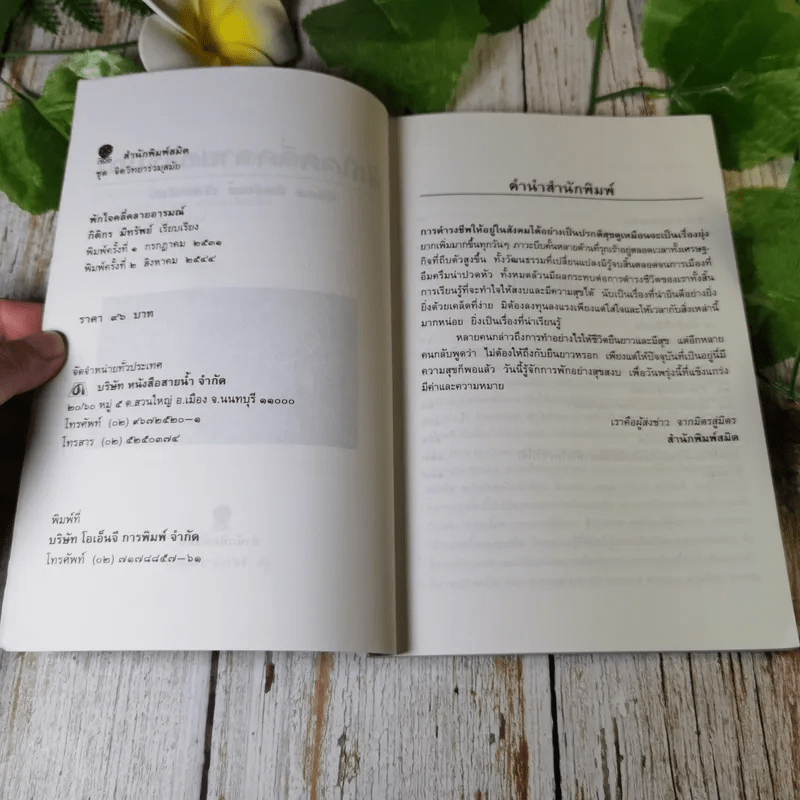 สำนักพิมพ์สมิต
ชุด จิตวิทยาร่วมสมัย
พักใจคลี่คลายอารมณ์
กิติกร มีทรัพย์ เรียบเรียง
พิมพ์ครั้งที่ ๑ กรกฎาคม ๒๕๓๑
พิมพ์ครั้งที่ ๒ สิงหาคม ๒๕๔๔
ราคา ๙๖ บาท
จัดจำหน่ายทั่วประเทศ
บริษัท หนังสือสายน้ำ จำกัด
๒๐/๖๐ หมู่ ๕ ต.สวนใหญ่ อ.เมือง จ.นนทบุรี ๑๑๐๐๐
โทรศัพท์ (๐๒) ๙๖๗๒๕๒๐-๑
โทรสาร (๐๒) ๕๒๕๐๓๗๔
พิมพ์ที่
บริษัท โอเอ็นจี การพิมพ์ จำกัด
โทรศัพท์ (๐๒) ๗๑๗๘๘๕๗-๖๑
คำนำสำนักพิมพ์
การดำรงชีพให้อยู่ในสังคมได้อย่างเป็นปรกติสุขดูเหมือนจะเป็นเรื่องยุ่ง
ยากเพิ่มมากขึ้นทุกวันๆ ภาวะบีบคั้นหลายด้านที่รุกเร้าอยู่ตลอดเวลาทั้งเศรษฐ-
กิจที่ถีบตัวสูงขึ้น ทั้งวัฒนธรรมที่เปลี่ยนแปลงมิรู้จบสิ้นตลอดจนการเมืองที่
อึมครึมน่าปวดหัว ทั้งหมดล้วนมีผลกระทบต่อการดำรงชีวิตของเราทั้งสิ้น
การเรียนรู้ที่จะทำใจให้สงบและมีความสุขได้ นับเป็นเรื่องที่น่ายินดีอย่างยิ่ง
ยิ่งด้วยเคล็ดที่ง่าย มิต้องลงทุนลงแรงเพียงแต่ใส่ใจและให้เวลากับสิ่งเหล่านี้
มากหน่อย ยิ่งเป็นเรื่องที่น่าเรียนรู้
หลายคนกล่าวถึงการทำอย่างไรให้ชีวิตยืนยาวและมีสุข แต่อีกหลาย
คนกลับพูดว่า ไม่ต้องให้ถึงกับยืนยาวหรอก เพียงแต่ให้ปัจจุบันที่เป็นอยู่นี้มี
ความสุขก็พอแล้ว วันนี้รู้จักการพักอย่างสุขสงบ เพื่อวันพรุ่งนี้ที่แข็งแกร่ง
มีค่าและความหมาย
เราคือผู้ส่งข่าว จากมิตรสู่มิตร
สำนักพิมพ์สมิต